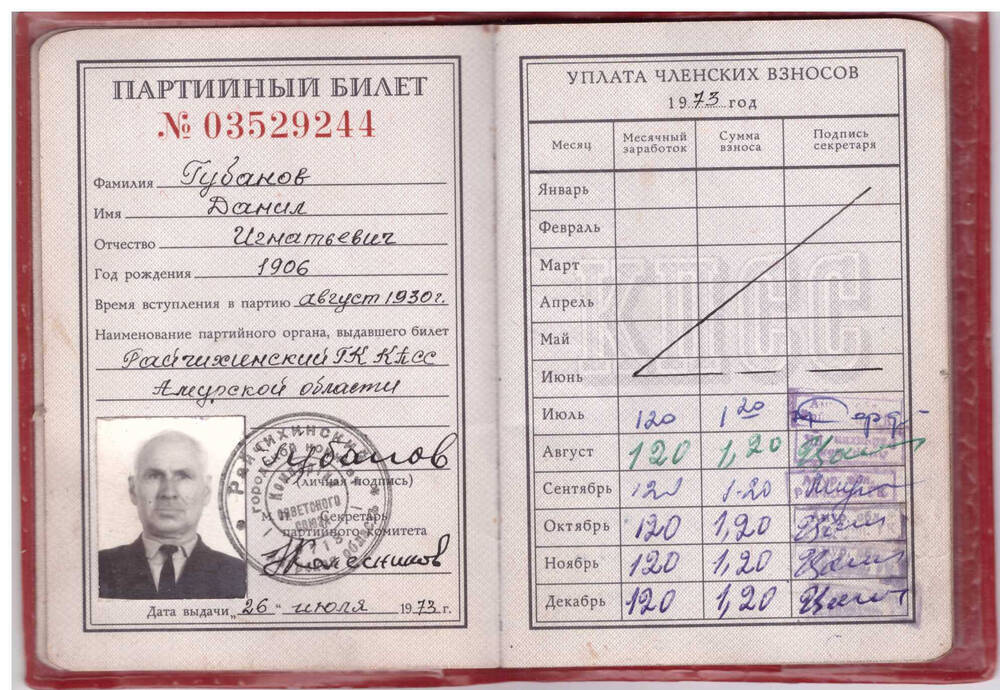 ПАРТИЙНЫЙ БИЛЕТ
№ 03529244
Фамилия Губанов
Имя Данил
Отчество Игнатьевич
Год рождения 1906
Время вступления в партию август 1930 г.
Наименование партийного органа, выдавшего билет
Райчихинский ГК КПСС
Амурской области
Губанов
(личная подпись)
М Секретарь
партийного комитета
Колесников
Дата выдачи „26“ июля 1973 г.
УПЛАТА ЧЛЕНСКИХ ВЗНОСОВ
1973 год
Месяц Месячный заработок Сумма взноса Подпись секретаря
Январь
Февраль
Март
Апрель
Май
Июнь
Июль 120 1 20
Август 120 1,20
Сентябрь 120 1-20
Октябрь 120 1,20
Ноябрь 120 1,20
Декабрь 120 1,20
КПСС